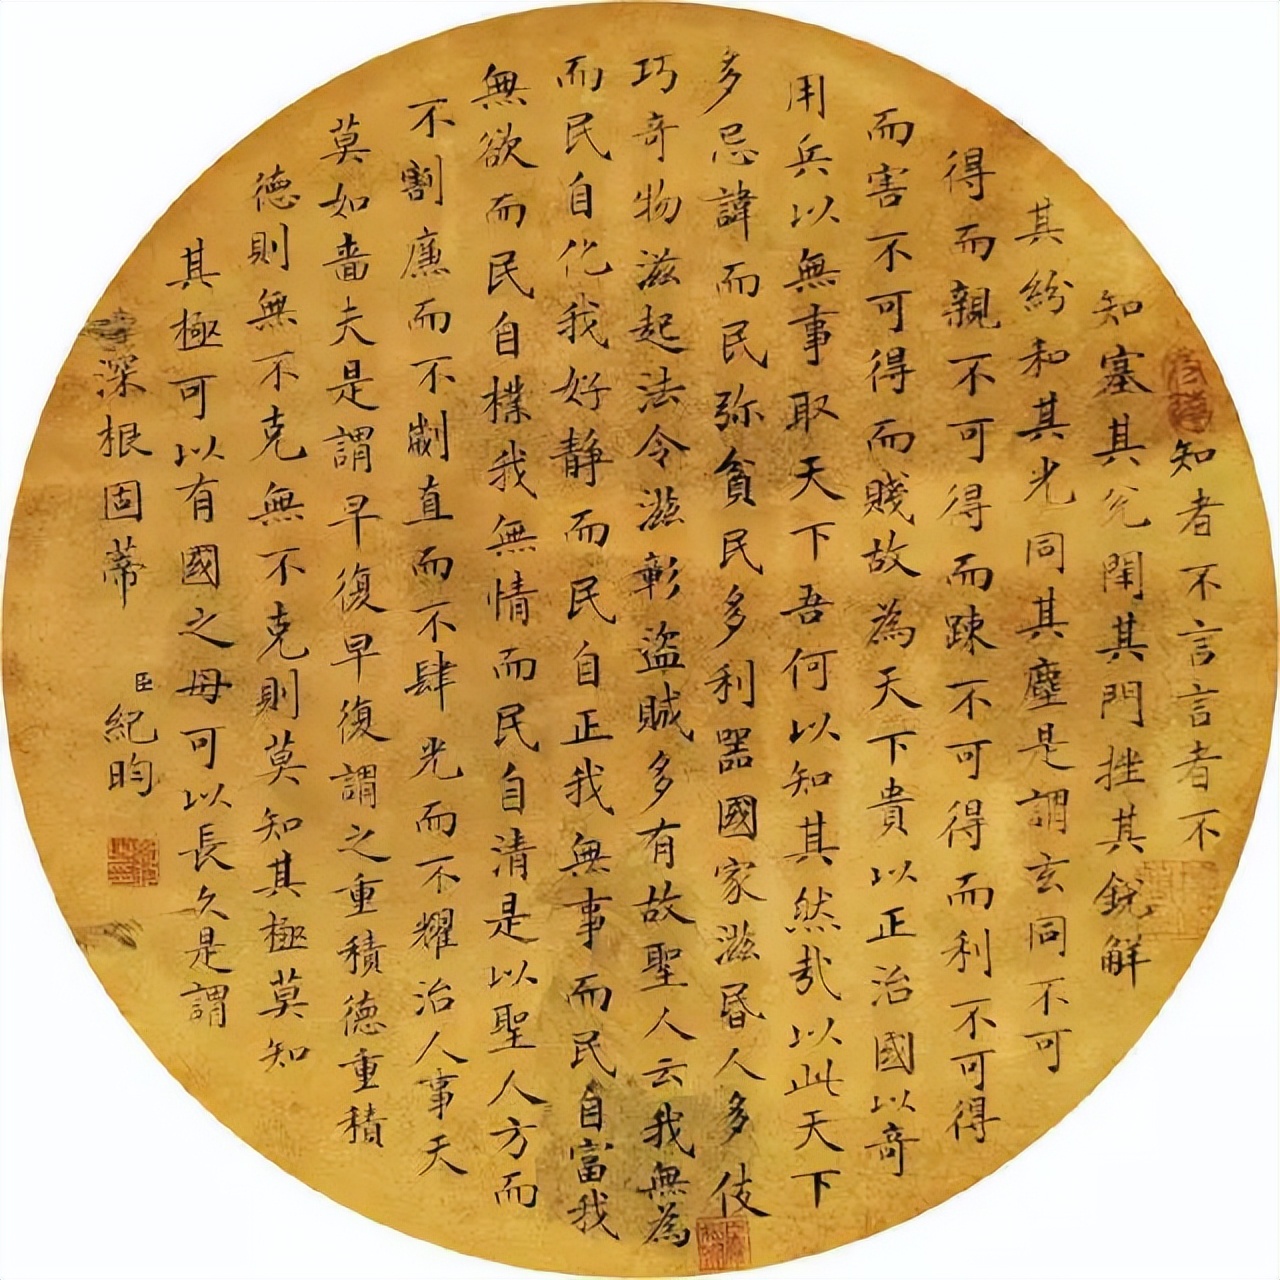 知者不言言者不
知塞其兊閇其門挫其銳解
其紛和其光同其塵是謂玄同不可
得而親不可得而踈不可得而利不可得
而害不可得而賤故為天下貴以正治國以奇
用兵以無事取天下吾何以知其然哉以此天下
多忌諱而民弥貧民多利器國家滋昬人多伎
巧奇物滋起法令滋彰盜賊多有故聖人云我無為
而民自化我好靜而民自正我無事而民自富我
無欲而民自樸我無情而民自清是以聖人方而
不割廉而不劌直而不肆光而不耀治人事天
莫如嗇夫是謂早復早復謂之重積德重積
德則無不克無不克則莫知其極莫知
其極可以有國之母可以長久是謂
深根固蒂 臣紀昀